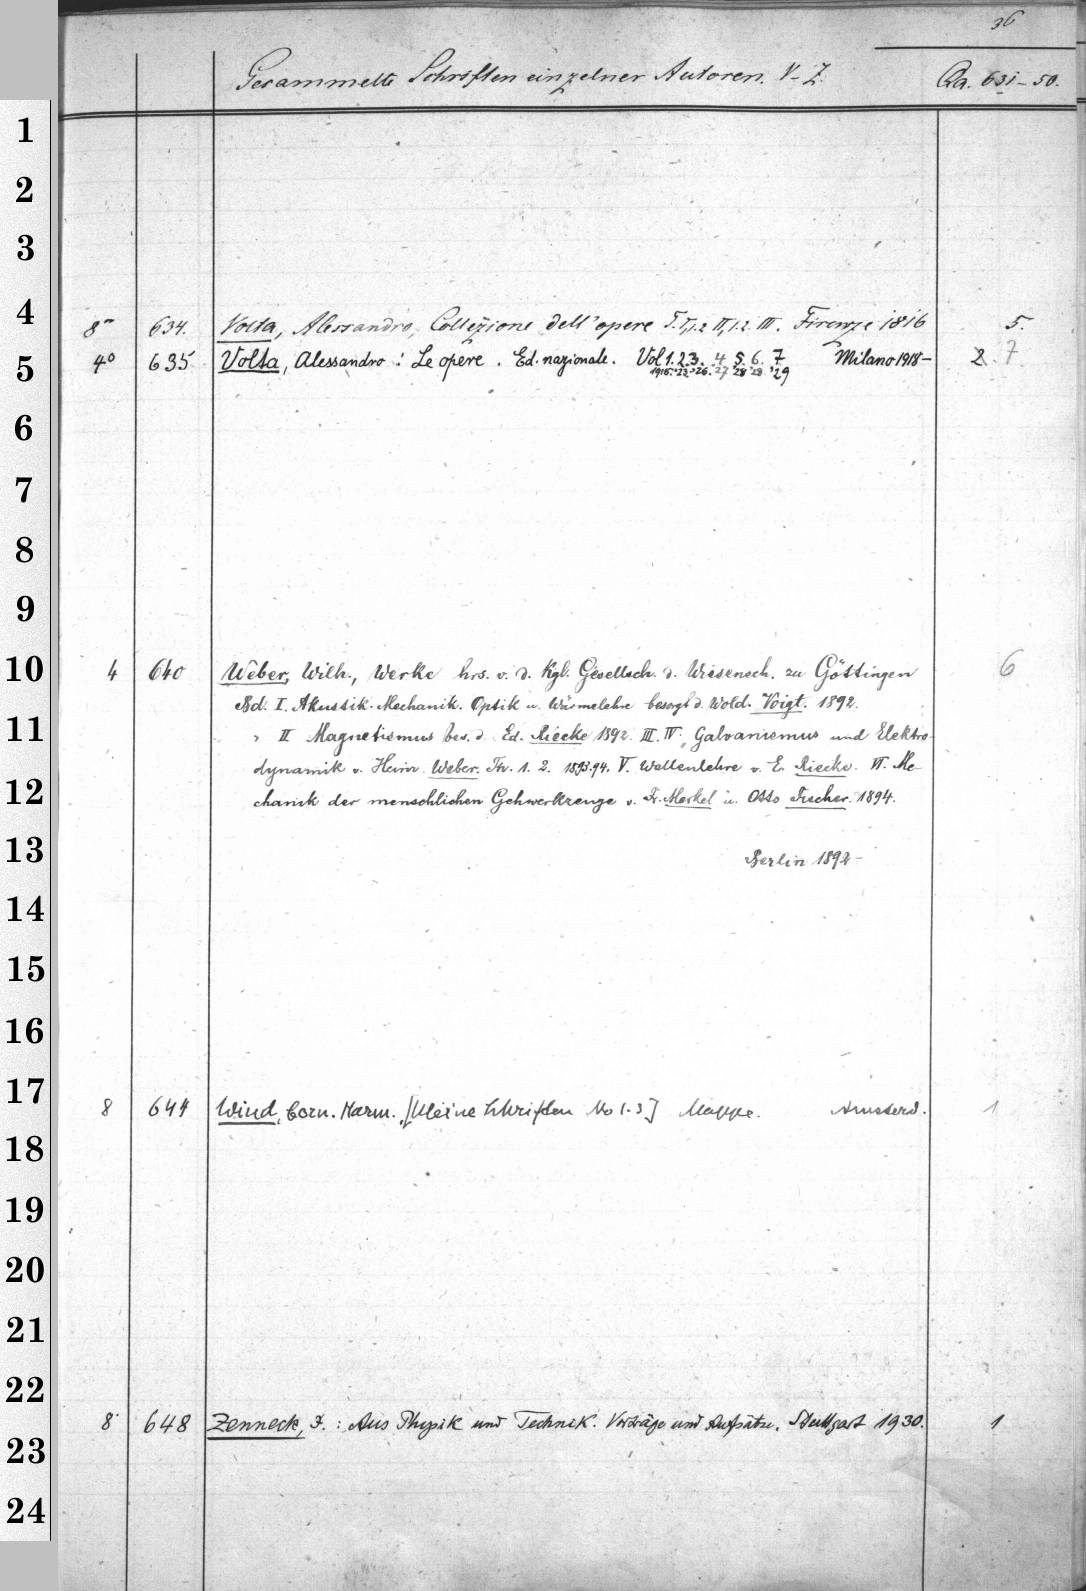 36
Gesammelte Schriften einzelner Autoren. V-Z. Qa. 631-50.
8° 634. Volta, Alessandro, Collezione dell'opere T. I,1.2 II,1.2. III. Firenze 1816 5.
4° 635 Volta, Alessandro: Le opere. Ed. nazionale. Vol 1. 2. 3. 4 5. 6. 7 Milano 1918- 2. 7
1918. '23. '26. '27 '28 '29
4 640 Weber, Wilh., Werke hrs. v. d. Kgl. Gesellsch. d. Wissensch. zu Göttingen 6
Bd. I. Akustik. Mechanik. Optik u. Wärmelehre besorgt d. Wold. Voigt. 1892.
" II Magnetismus bes. d. Ed. Riecke 1892. III. IV. Galvanismus und Elektro-
dynamik v. Heinr. Weber. Th. 1. 2. 1893.94. V. Wellenlehre v. E. Riecke. VI. Me-
chanik der menschlichen Gehwerkzeuge v. Fr. Merkel u. Otto Fischer. 1894.
Berlin 1892-
8 644 Wind, Corn. Harm., [Kleine Schriften No 1-3] Mappe. Amsterd. 1
8 648 Zenneck, J.: Aus Physik und Technik. Vorträge und Aufsätze. Stuttgart 1930. 1
1
2
3
4
5
6
7
8
9
10
11
12
13
14
15
16
17
18
19
20
21
22
23
24